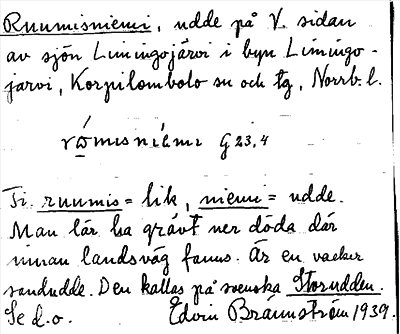 Ruumisniemi, udde på V. sidan
av sjön Limingojärvi i byn Limingo-
järvi, Korpilombolo sn och tg, Norrb. l.
rω̄misni̯emi G 23,4
Fi. ruumis = lik, niemi = udde.
Man lär ha grävt ner döda där
innan landsväg fanns. Är en vacker
sandudde. Den kallas på svenska Storudden.
Se d.o. Edvin Brännström 1939.